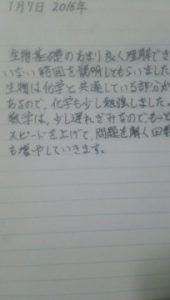 1月7日 2016年
生物基礎のあまり良く理解でき
いない範囲を説明してもらいました
生物は化学と共通している部分が
あるので、化学も少し勉強しました。
数学は、少し遅れぎみなので、もっと
スピードを上げて、問題を解く回数
も増やしていきます。